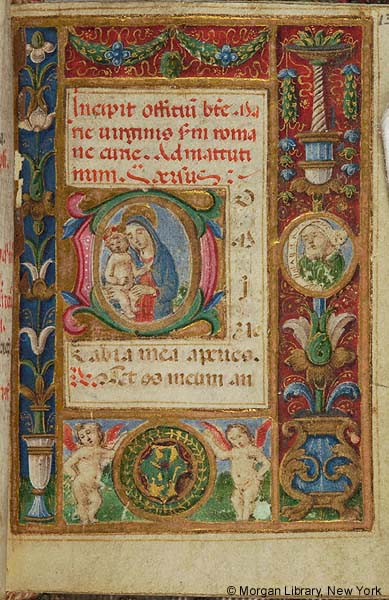 Incipit offitiũ bte Ma
rie virginis sm roma
ne curie. Ad matuti
num. Versus
D
O
M
I
NE
labia mea aperies.
R Et os meum an
© Morgan Library, New York